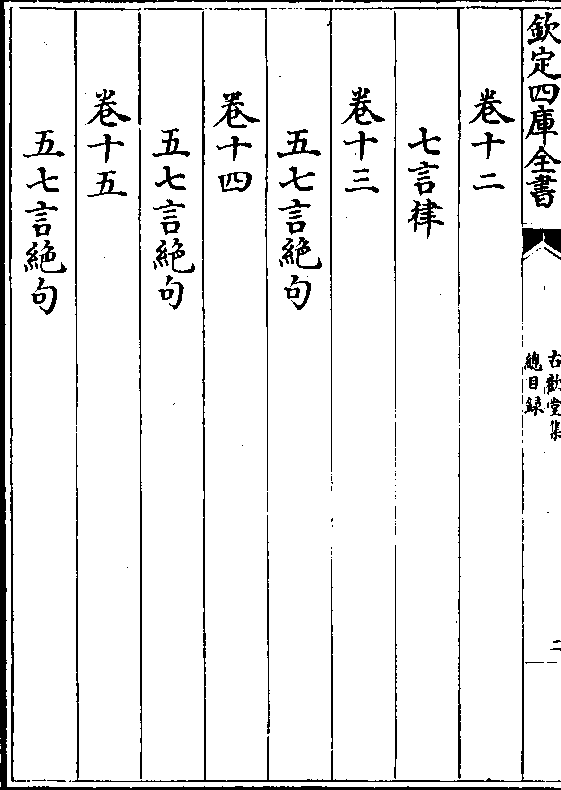 欽定四庫全書
古歡堂集
總目録
二
卷十二
七言律
卷十三
五七言絶句
卷十四
五七言絶句
卷十五
五七言絶句